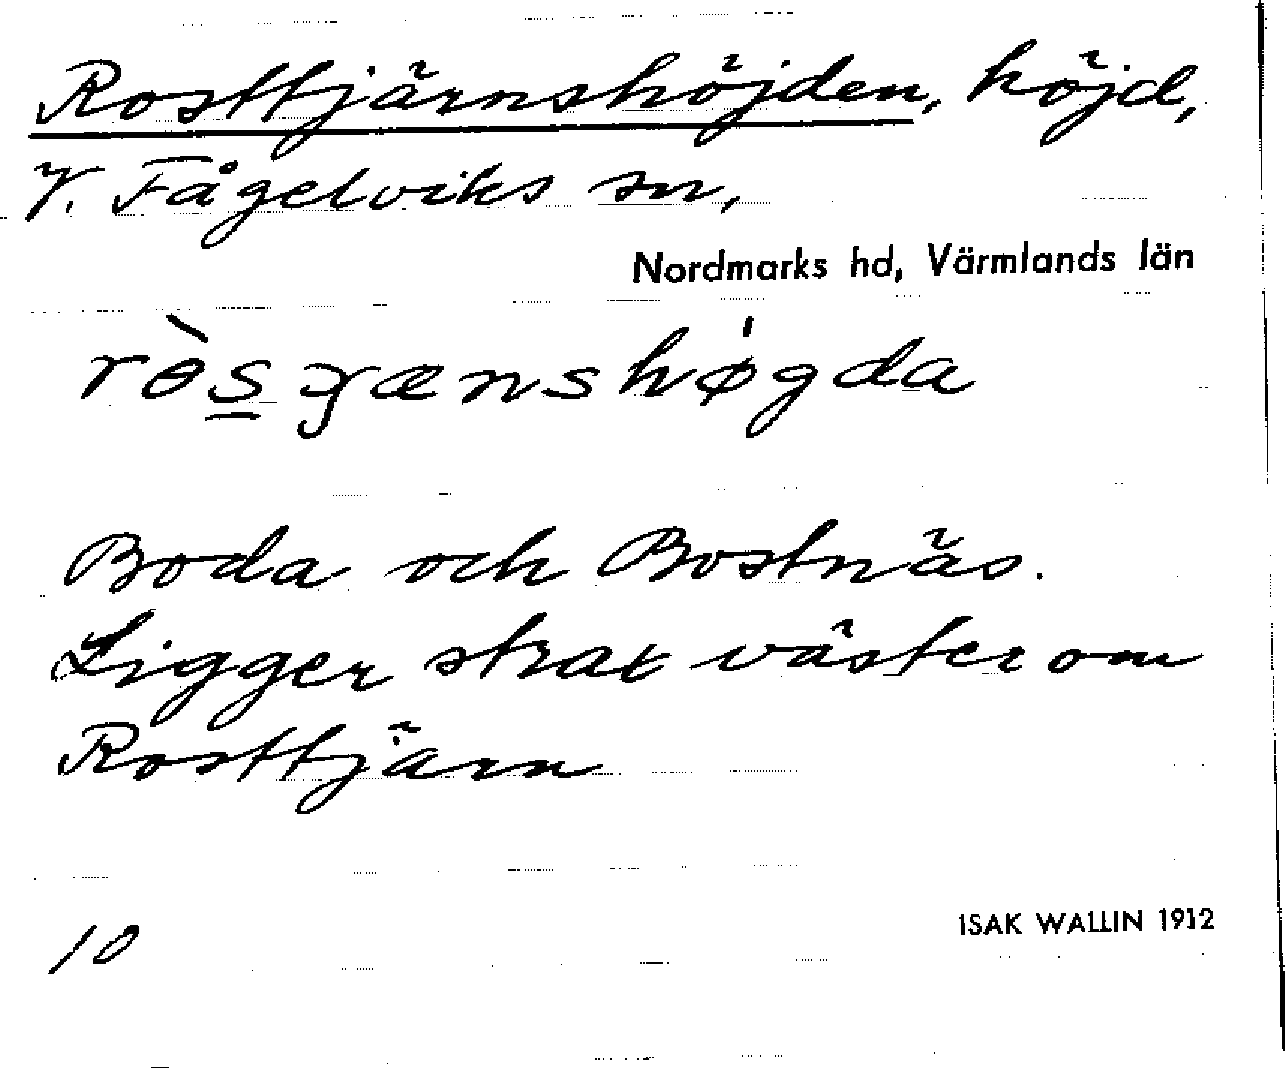 Rosttjärnshöjden, höjd,
V. Fågelviks sn,
Nordmarks hd, Värmlands län
rɵ̀s̲ɟænshǿgda
Boda och Bostnäs.
Ligger strax väster om
Rosttjärn
10
ISAK WALLIN 1912